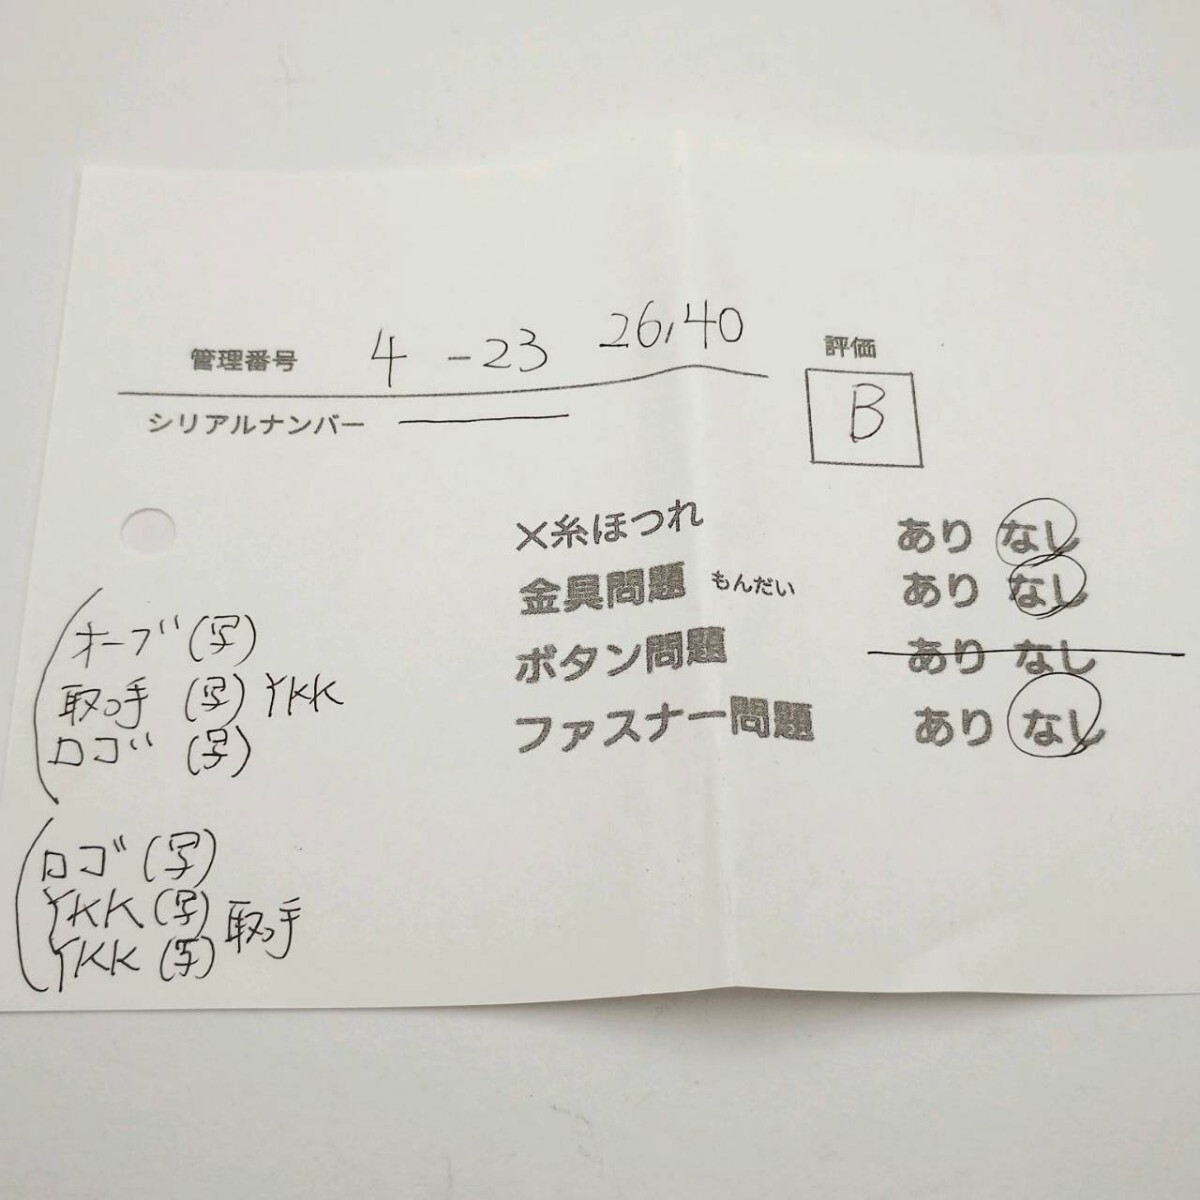 管理番号 4 -23 26,40
評価
シリアルナンバー
B
×糸ほつれ あり なし
金具問題 もんだい あり なし
ボタン問題 あり なし
ファスナー問題 あり なし
オーブ(写)
取っ手 (写) YKK
ロゴ (写)
ロゴ(写)
YKK(写)
YKK(写) 取っ手